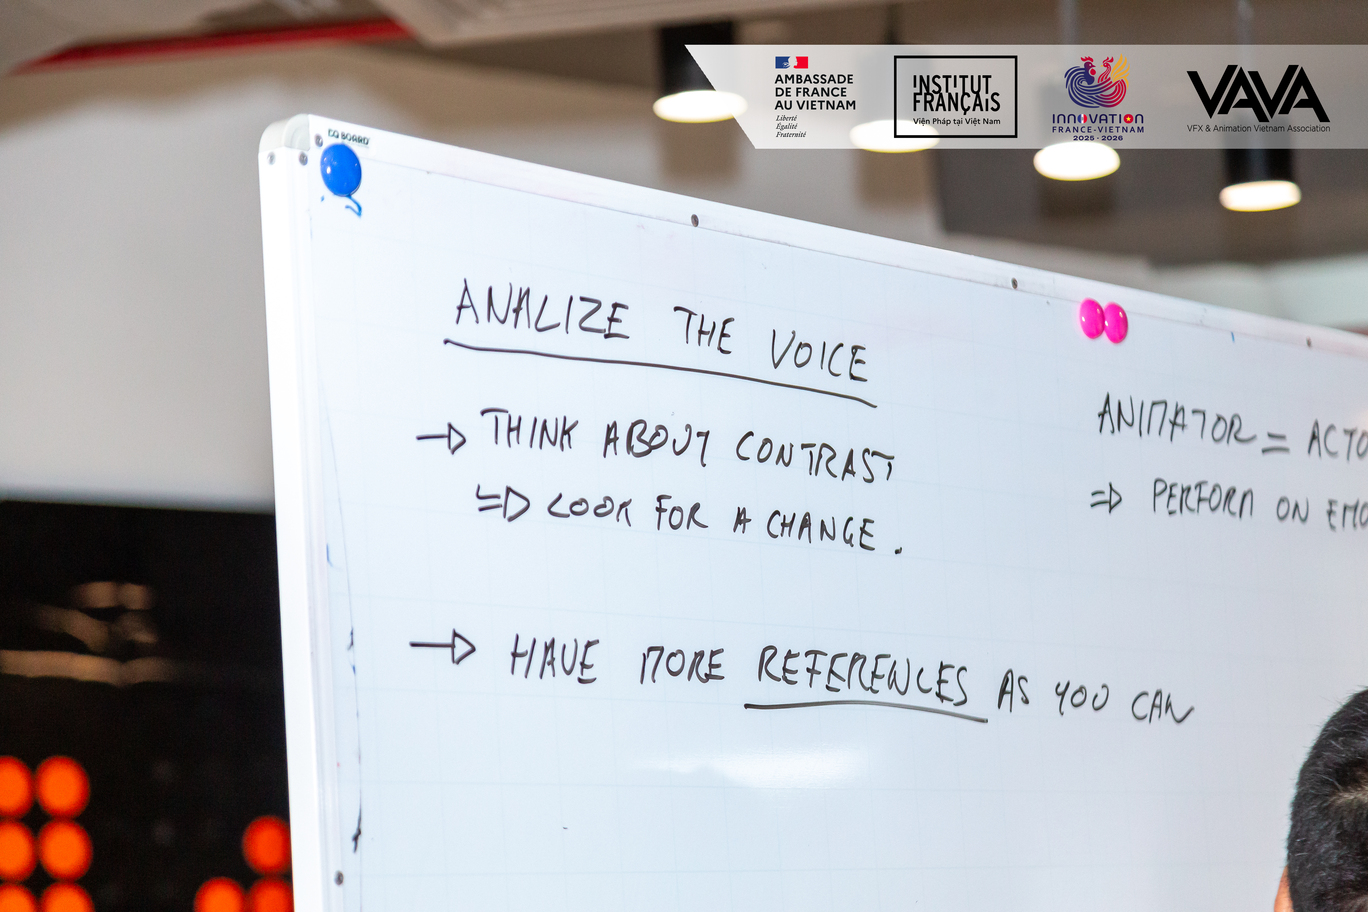 AMBASSADE
DE FRANCE
AU VIETNAM
Liberté
Égalité
Fraternité
INSTITUT
FRANÇAIS
Viện Pháp tại Việt Nam
INNOVATION
FRANCE-VIETNAM
2025 - 2026
VAVA
VFX & Animation Vietnam Association
BOARD
ANALIZE THE VOICE
→ THINK ABOUT CONTRAST
⇒ LOOK FOR A CHANGE.
→ HAVE MORE REFERENCES AS YOU CAN
ANIMATOR = ACTO
⇒ PERFORM ON EMO